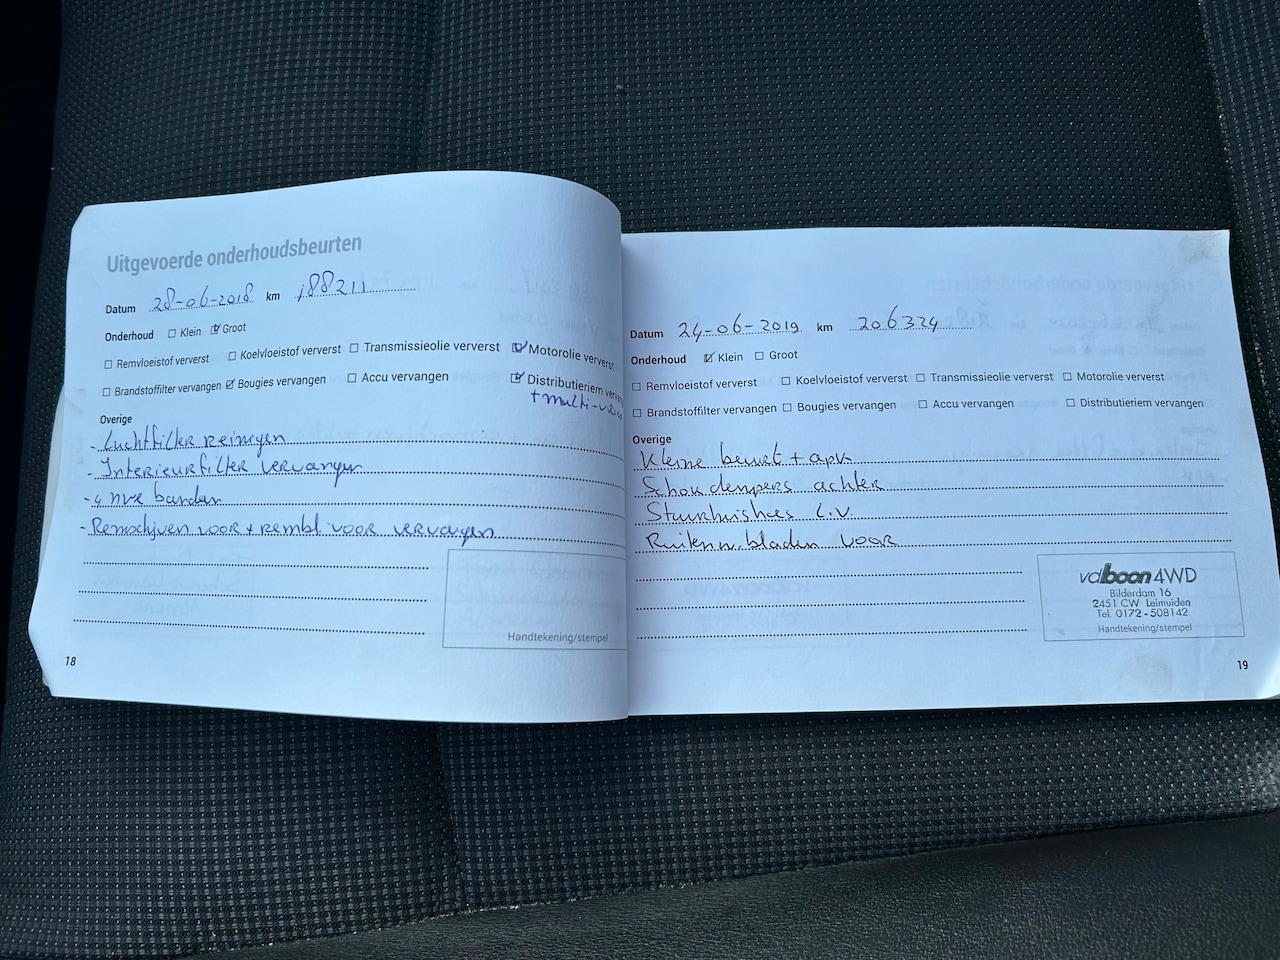 Uitgevoerde onderhoudsbeurten
Datum 28-06-2018 km 188211
Onderhoud Klein Groot
Remvloeistof ververst Koelvloeistof ververst Transmissieolie ververst Motorolie ververst
Brandstoffilter vervangen Bougies vervangen Accu vervangen Distributieriem verva
+ multi-
Overige
- Luchtfilter Reinigen
- Interieurfilter vervangen
- 4 nwe banden
- Remschijven voor + rembl voor vervangen
Handtekening/stempel
18
Datum 24-06-2019 km 206324
Onderhoud Klein Groot
Remvloeistof ververst Koelvloeistof ververst Transmissieolie ververst Motorolie ververst
Brandstoffilter vervangen Bougies vervangen Accu vervangen Distributieriem vervangen
Overige
Kleine beurt + apk
Schokdempers achter
Stuurhuishoes L.V.
Ruitenw. bladen voor
vdboon 4WD
Bilderdam 16
2451 CW Leimuiden
Tel. 0172-508142
Handtekening/stempel
19